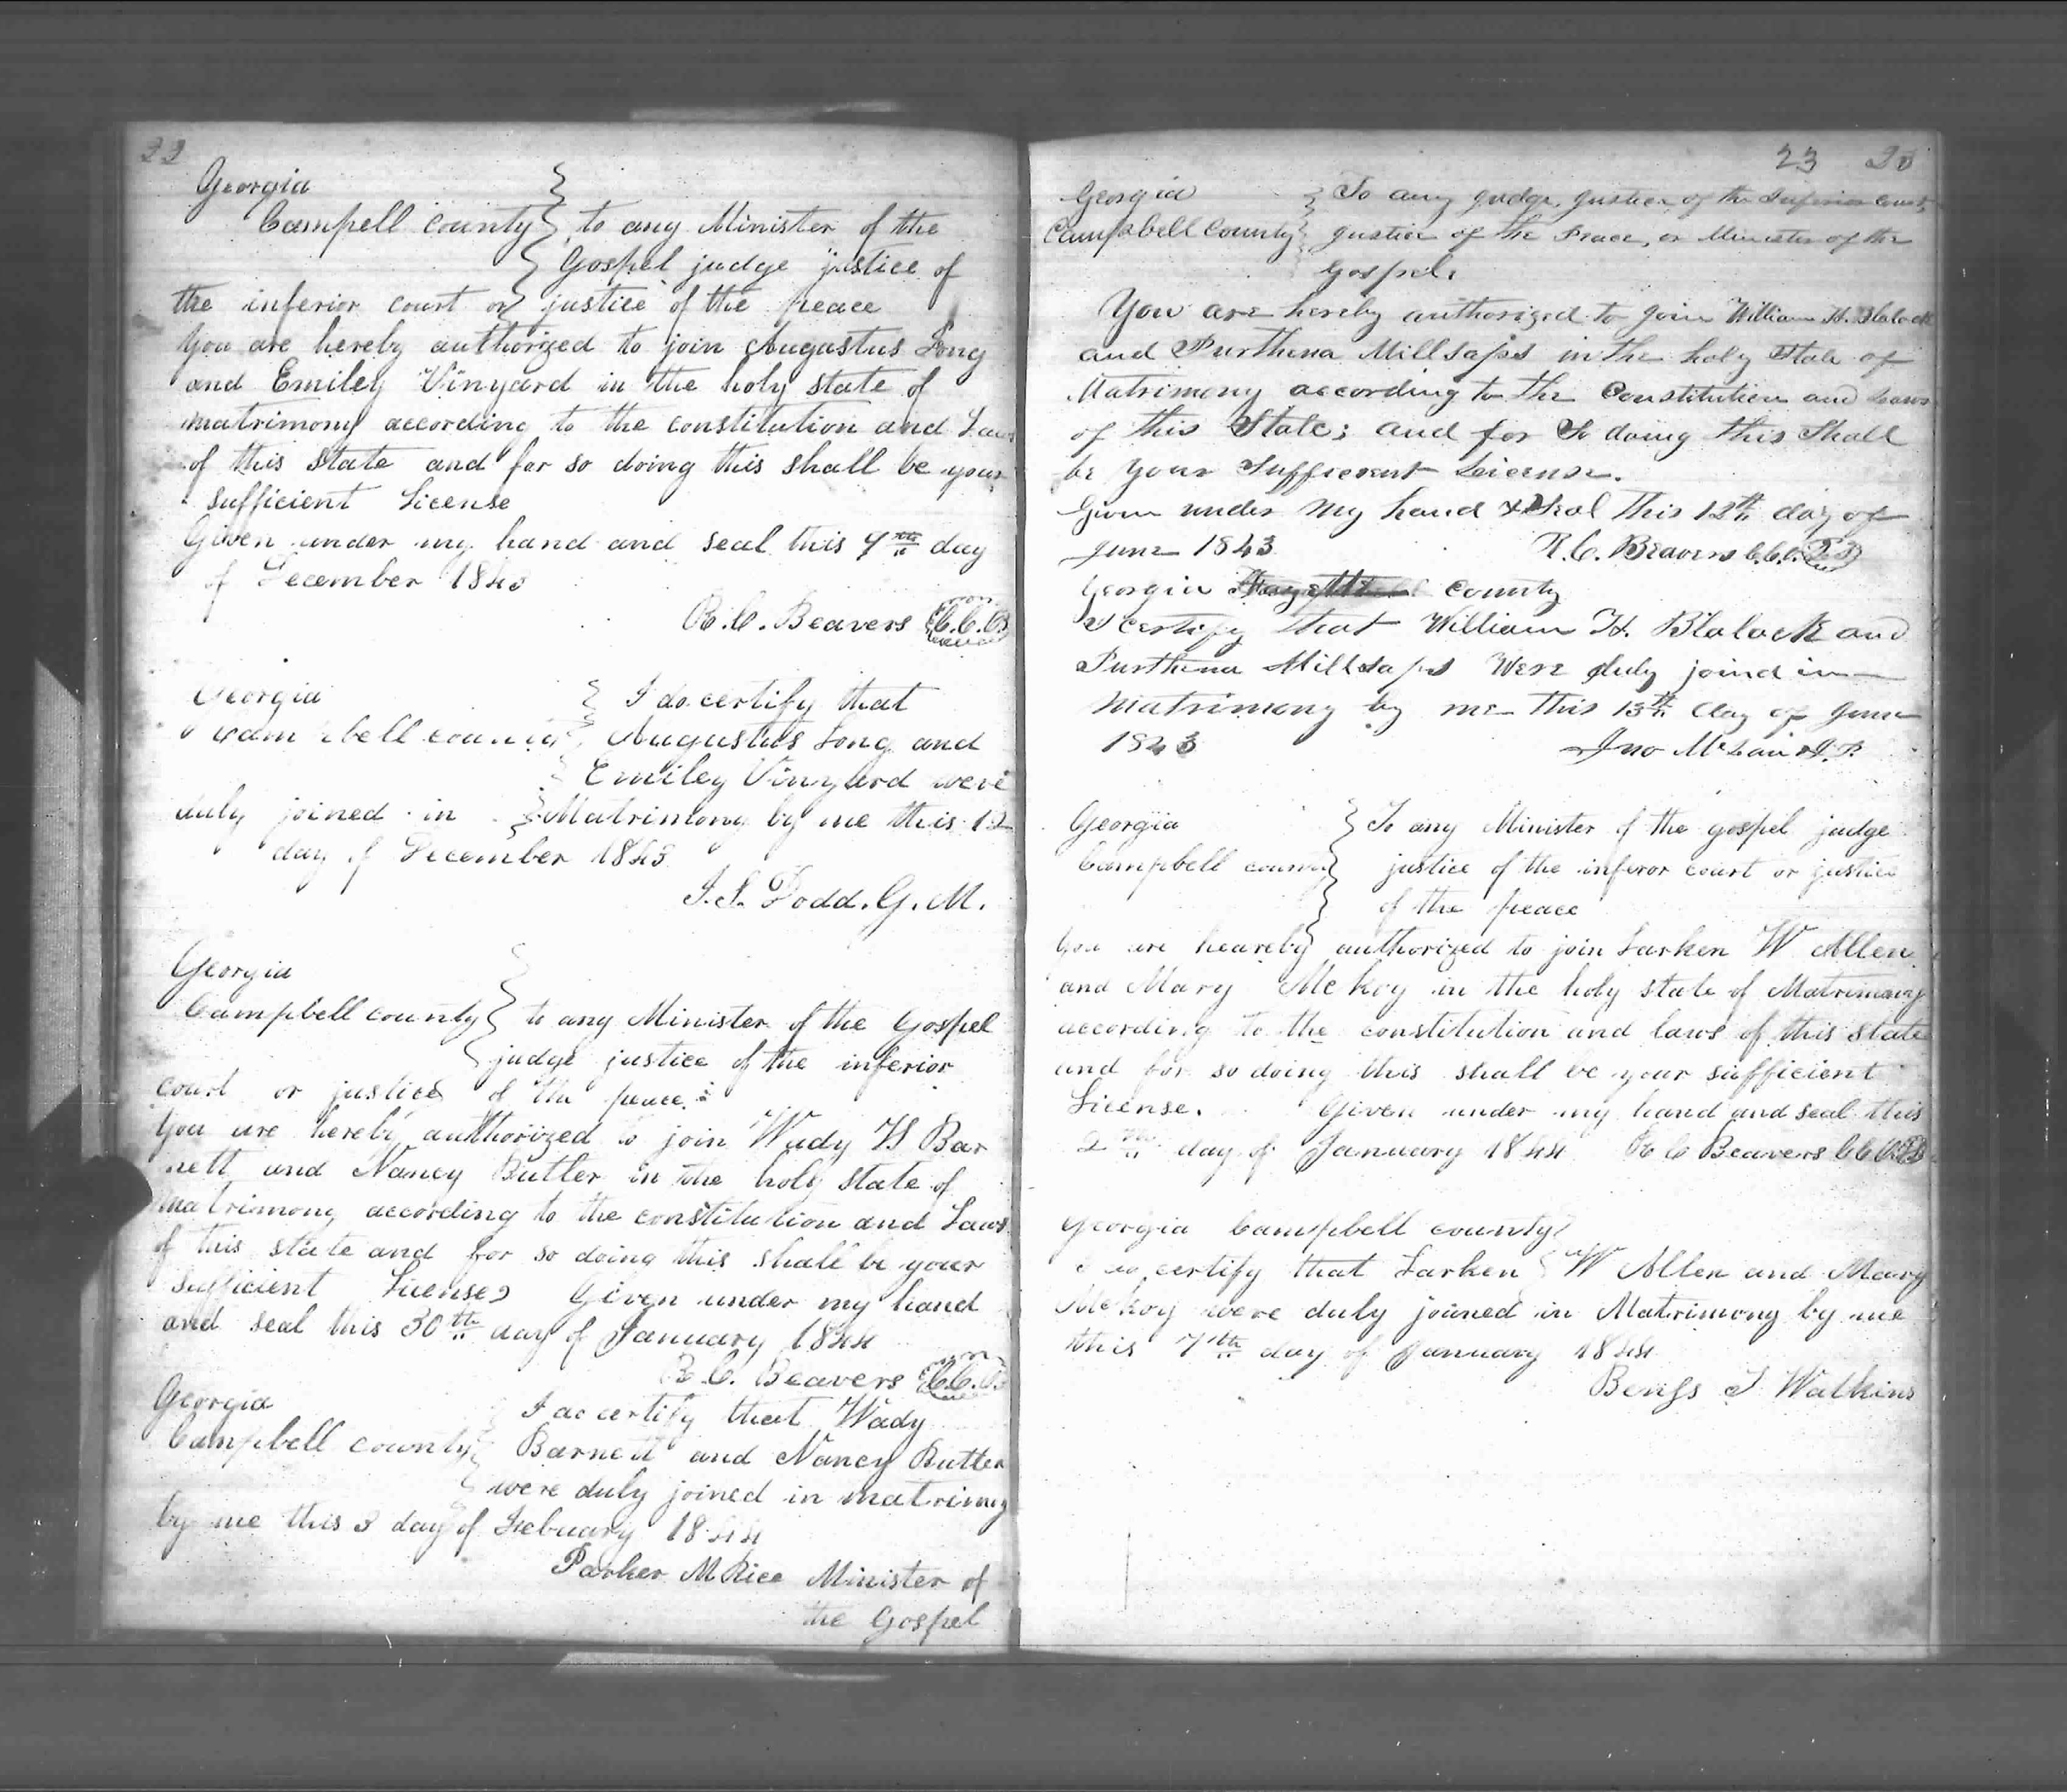 22
Georgia
Campell county to any Minister of the
Gospel judge justice of
the inferior court or justice of the peace
You are hereby authorized to join Augustus Long
and Emiley Vinyard in the holy state of
matrimony according to the constitution and Laws
of this state and for so doing this shall be your
sufficient License
Given under my hand and seal this day
of December 1843
R. C. Beavers C.C.O
Georgia I do certify that
Campbell county Augustus Long and
Emiley Vinyard were
duly joined in Matrimony by me this 12
day of December 1843
J. S. Dodd. G. M.
Georgia
Campbell county to any Minister of the Gospel
judge justice of the inferior
court or justice of the peace
You are hereby authorized to join Wady H Bar
nett and Nancy Butler in the holy state of
matrimony according to the constitution and Laws
of this state and for so doing this shall be your
sufficient License Given under my hand
and seal this 30th day of January 1844
R. C. Beavers C.C.O
Georgia I do certify that Wady
Campbell county Barnett and Nancy Butler
were duly joined in matrimony
by me this 3 day of Febuary 1844
Parker M Rice Minister of
the Gospel
23 20
Georgia To any Judge, Justice of the Inferior Court,
Campbell County Justice of the Peace, or Minister of the
Gospel.
You are hereby authorized to join William H. Blalock
and Purthena Millsaps in the holy State of
Matrimony according to the Constitution and Laws
of this State; and for So doing this Shall
be your Sufficient License.
Given under my hand & Seal this 13th day of
June 1843 R. C. Beavers C.C.O.
Georgia Fayette County
I certify that William H. Blalock and
Purthena Millsaps Were duly joined in
Matrimony by me this 13th day of June
1843 Jno McLain J.P.
Georgia To any Minister of the gospel judge
Campbell county justice of the inferor court or justice
of the peace
You are heareby authorized to join Larken W Allen
and Mary McKoy in the holy state of Matrimony
according to the constitution and laws of this state
and for so doing this shall be your sufficient
License. Given under my hand and seal this
2nd day of January 1844 R C Beavers C C O
Georgia Campbell county
I do certify that Larken W Allen and Mary
McKoy were duly joined in Matrimony by me
this 7th day of January 1844
Benjs T Watkins